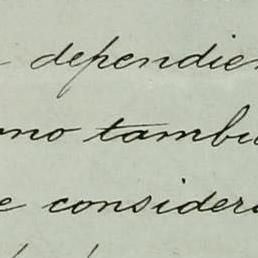 dependien
omo tambié
e considera